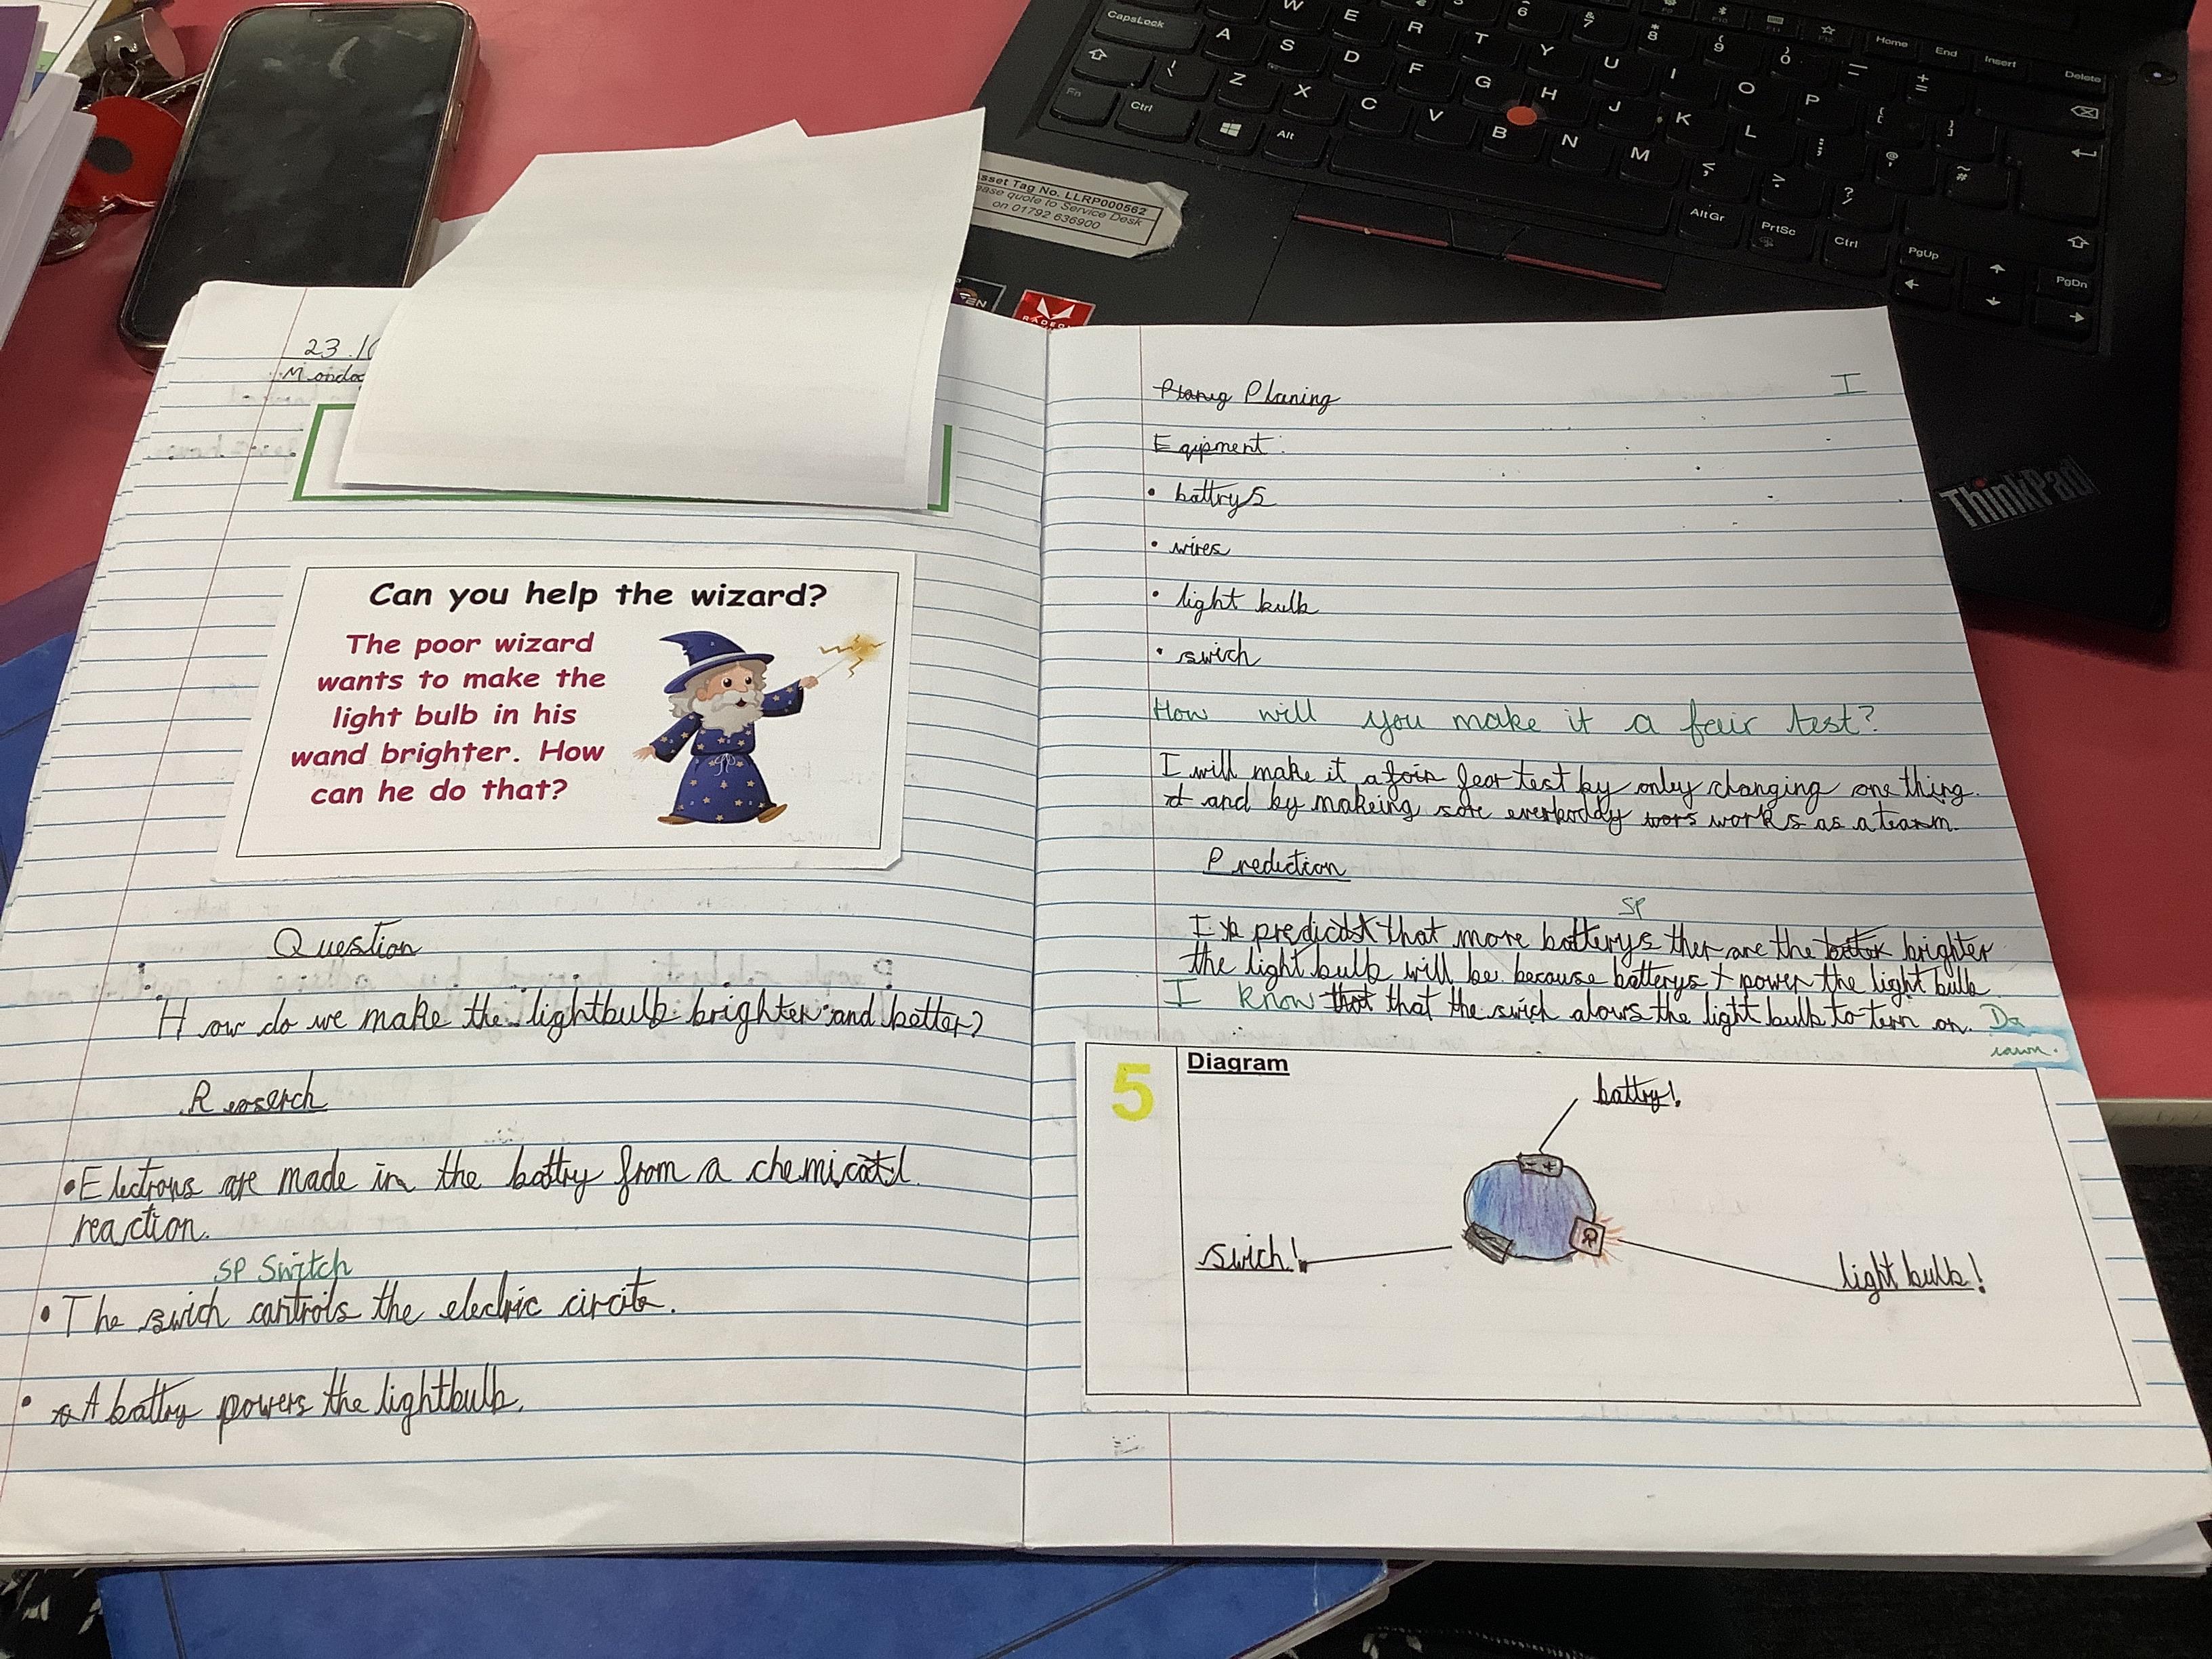 23.10
Monday
Can you help the wizard?
The poor wizard
wants to make the
light bulb in his
wand brighter. How
can he do that?
Question
How do we make the lightbulb brighter and better?
Reaserch
• Electrons are made in the battry from a chemical
reaction.
SP Switch
• The swich controls the electric circite.
• A battry powers the lightbulb.
Planig Planing
I
Eqipment:
• battrys
• wires
• light bulb
• swich
How will you make it a fair test?
I will make it a fair fear test by only changing one thing.
and by makeing sore everboday wors works as a team.
Prediction
SP
I predict that more batterys ther are the better brighter
the light bulb will be because batterys power the light bulb.
I know that that the swich alows the light bulb to tern on. Da
iawn.
5
Diagram
battry!
swich!
light bulb!
CapsLock
W E R T Y U I O P
A S D F G H J K L
Z X C V B N M
Fn Ctrl Alt AltGr PrtSc Ctrl PgUp PgDn
Home End Insert Delete
sset Tag No. LLRP000562
ease quote to Service Desk
on 01792 636900
EN
RADEON
ThinkPad